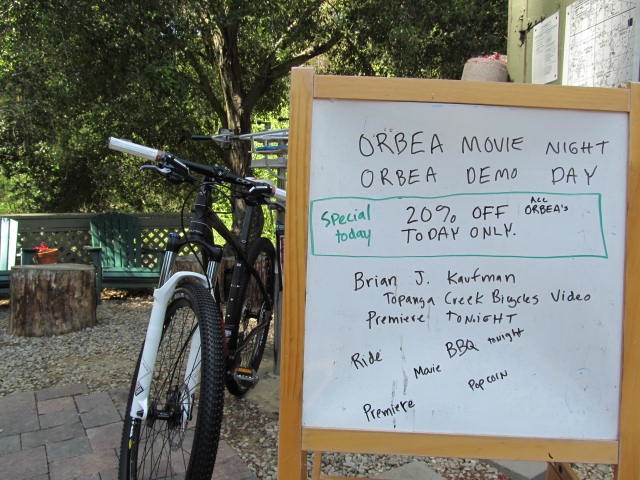 ORBEA MOVIE NIGHT
ORBEA DEMO DAY
Special today
20% OFF ALL ORBEA'S
TODAY ONLY.
Brian J. Kaufman
Topanga Creek Bicycles Video
Premiere TONIGHT
Ride Movie BBQ tonight
Premiere Popcorn